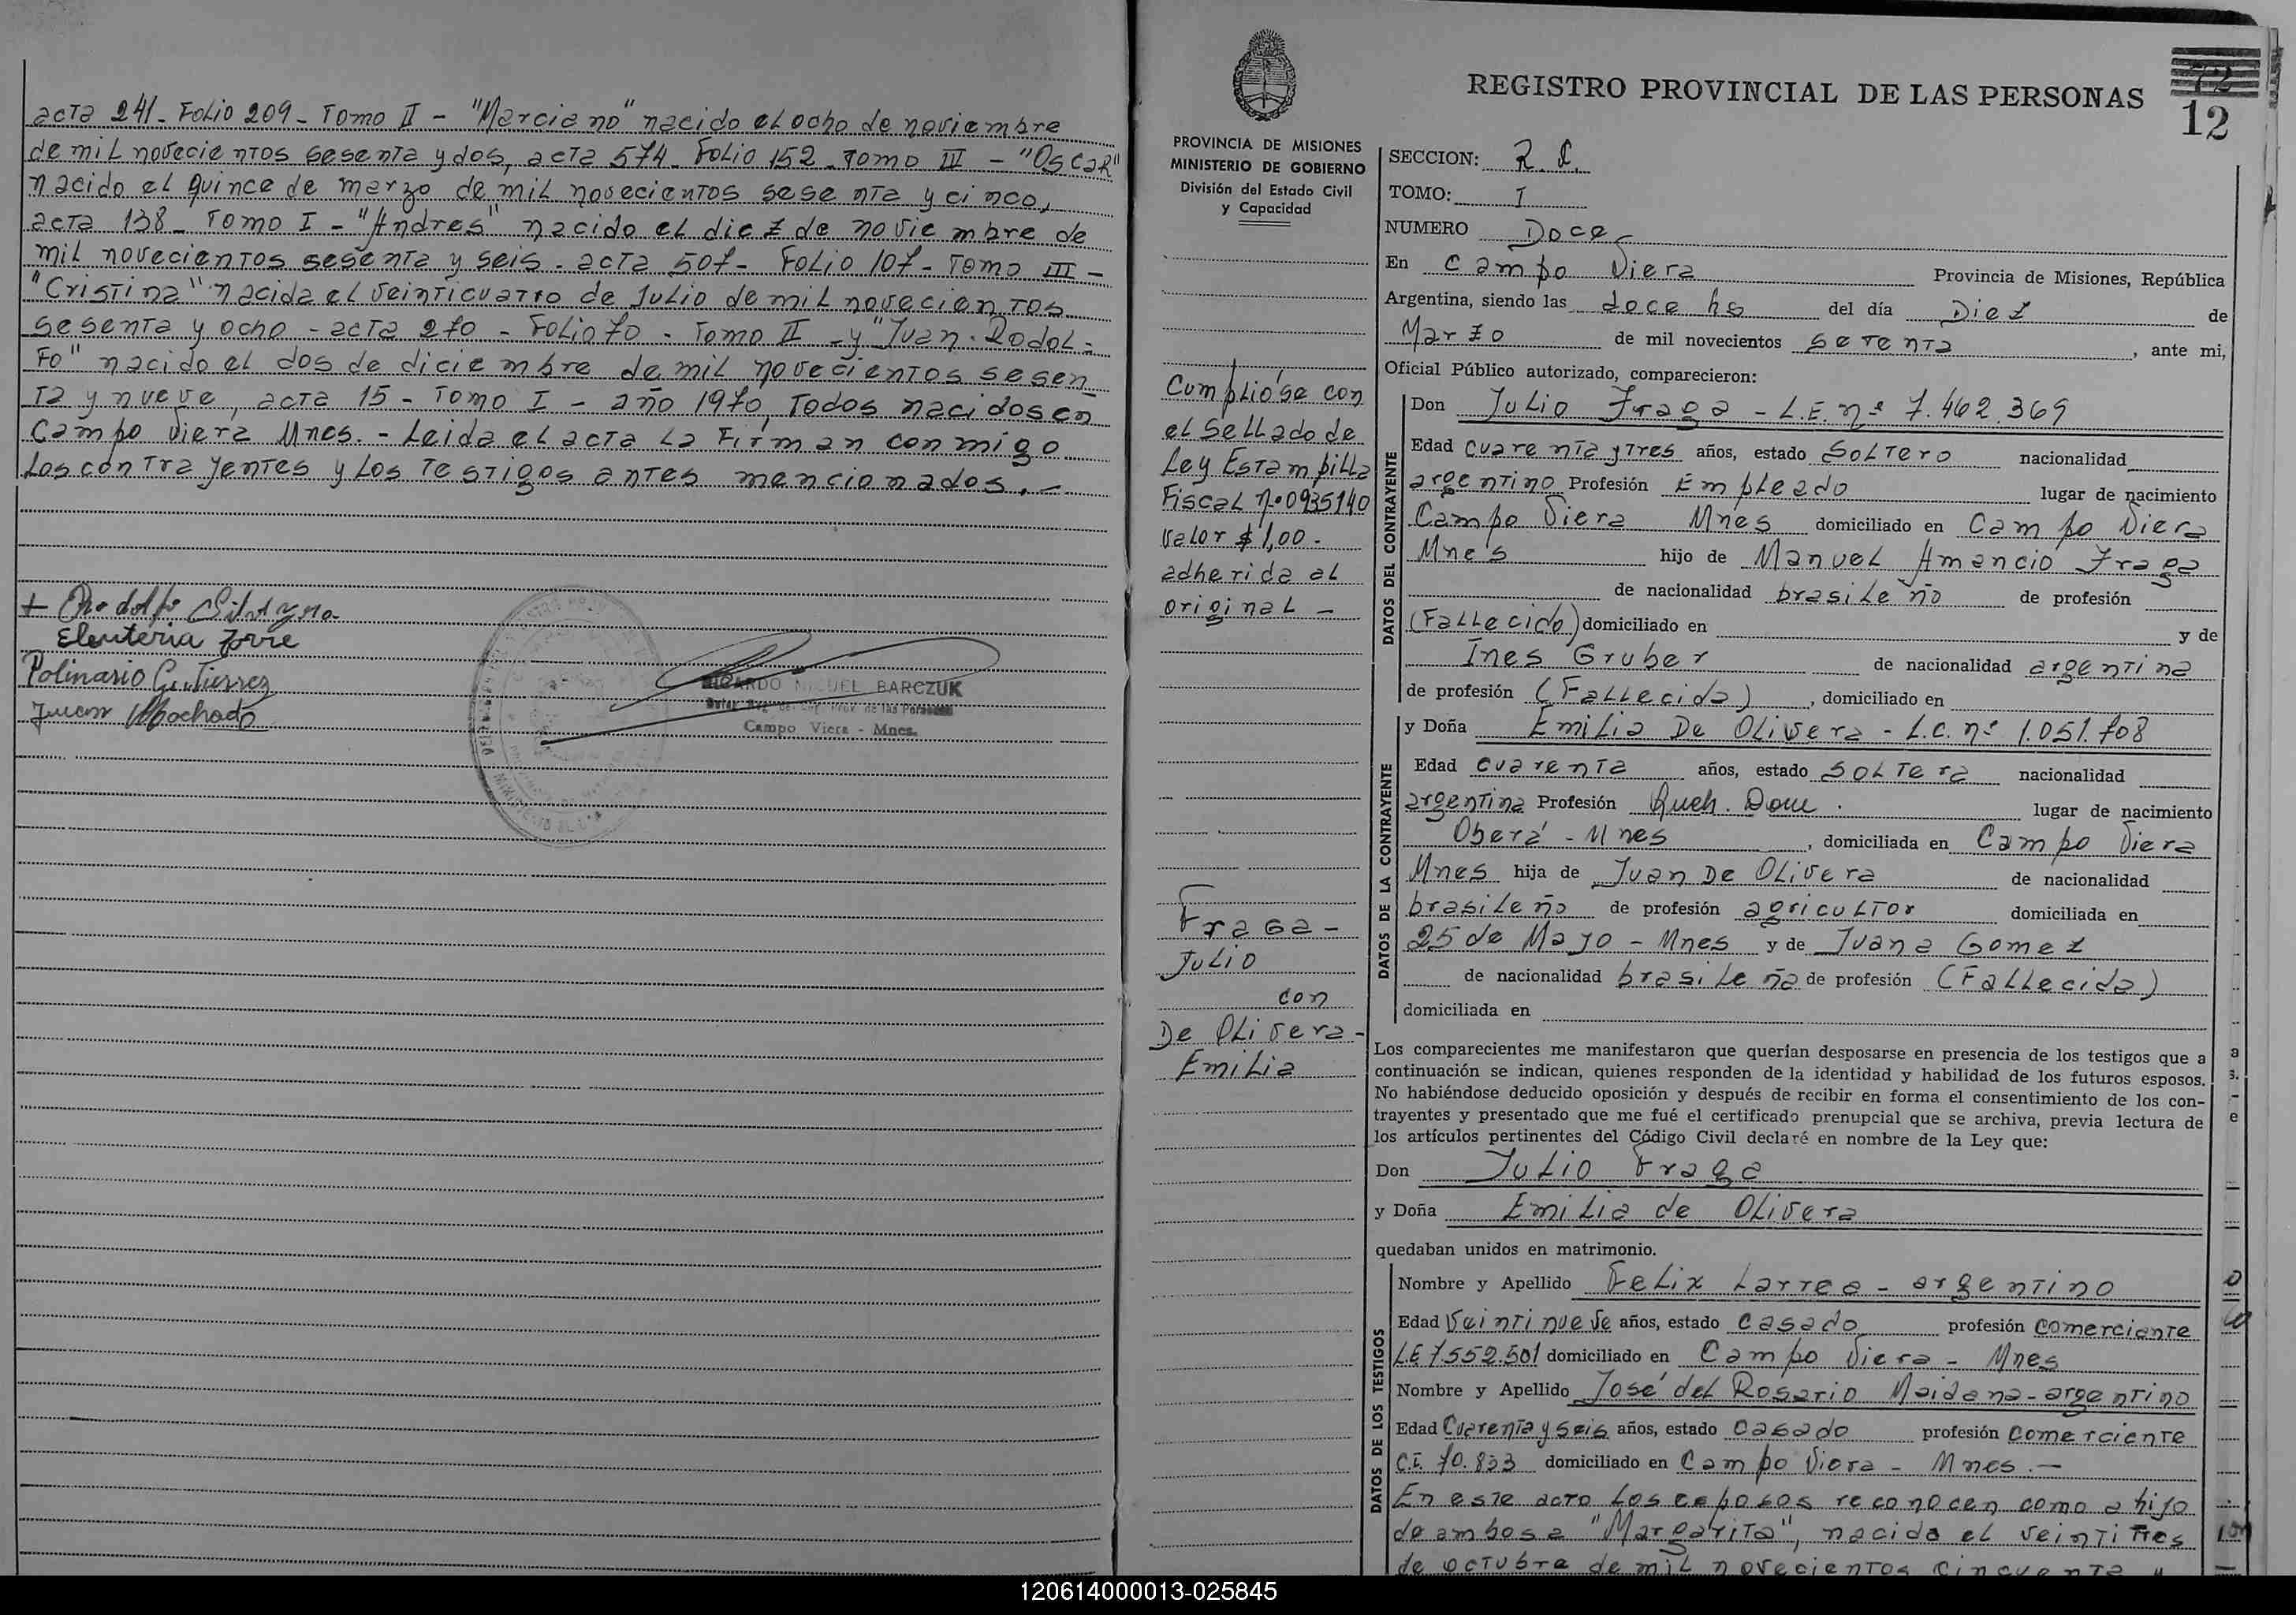 acta 241 - Folio 209 - Tomo II - "Marciano" nacido el ocho de noviembre
de mil novecientos sesenta y dos, acta 574 - Folio 152 - Tomo III - "Oscar"
nacido el quince de marzo de mil novecientos sesenta y cinco,
acta 138 - Tomo I - "Andres" nacido el diez de noviembre de
mil novecientos sesenta y seis - acta 507 - Folio 107 - Tomo III -
"Cristina" nacida el veinticuatro de Julio de mil novecientos
sesenta y ocho - acta 270 - Folio 70 - Tomo II - y "Juan Rodol=
fo" nacido el dos de diciembre de mil novecientos sesen
ta y nueve, acta 15 - Tomo I - año 1970, Todos nacidos en
Campo Viera Mnes. - Leida el acta la Firman conmigo
los contrayentes y los Testigos antes mencionados. -
Eleuteria
Polinario Gutierrez
Juan Machado
RICARDO MIGUEL BARCZUK
Campo Viera - Mnes.
PROVINCIA DE MISIONES
MINISTERIO DE GOBIERNO
División del Estado Civil
y Capacidad
Cumplióse con
el Sellado de
Ley Estampilla
Fiscal n.º 0935140
valor $ 1,00 -
adherida al
original -
Fraga -
Julio
con
De Olivera -
Emilia
REGISTRO PROVINCIAL DE LAS PERSONAS
72
12
SECCION:
TOMO: I
NUMERO Doce -
En Campo Viera Provincia de Misiones, República
Argentina, siendo las doce hs del día Diez de
Marzo de mil novecientos setenta, ante mi,
Oficial Público autorizado, comparecieron:
DATOS DEL CONTRAYENTE
Don Julio Fraga - L.E. nº 7.462.369
Edad cuarenta y tres años, estado Soltero nacionalidad
argentino Profesión Empleado lugar de nacimiento
Campo Viera Mnes domiciliado en Campo Viera
Mnes hijo de Manuel Amancio Fraga
de nacionalidad brasileño de profesión
(Fallecido) domiciliado en y de
Ines Gruber de nacionalidad argentina
de profesión (Fallecida), domiciliado en
DATOS DE LA CONTRAYENTE
y Doña Emilia De Olivera - L.C. nº 1.051.708
Edad cuarenta años, estado Soltera nacionalidad
argentina Profesión Queh. Dom. lugar de nacimiento
Oberá - Mnes, domiciliada en Campo Viera
Mnes hija de Juan De Olivera de nacionalidad
brasileño de profesión agricultor domiciliada en
25 de Mayo - Mnes y de Juana Gomez
de nacionalidad brasileña de profesión (Fallecida)
domiciliada en
Los comparecientes me manifestaron que querían desposarse en presencia de los testigos que a
continuación se indican, quienes responden de la identidad y habilidad de los futuros esposos.
No habiéndose deducido oposición y después de recibir en forma el consentimiento de los con-
trayentes y presentado que me fué el certificado prenupcial que se archiva, previa lectura de
los artículos pertinentes del Código Civil declaré en nombre de la Ley que:
Don Julio Fraga
y Doña Emilia de Olivera
quedaban unidos en matrimonio.
DATOS DE LOS TESTIGOS
Nombre y Apellido Felix Larrea - argentino
Edad Veintinueve años, estado casado profesión comerciante
L.E 7.552.501 domiciliado en Campo Viera - Mnes
Nombre y Apellido José del Rosario Maidana - argentino
Edad Cuarenta y seis años, estado casado profesión comerciante
C.I. 70.833 domiciliado en Campo Viera - Mnes. -
En este acto los esposos reconocen como a hijo
de ambos a "Margarita", nacida el veintitres
de octubre de mil novecientos cincuenta y
120614000013-025845